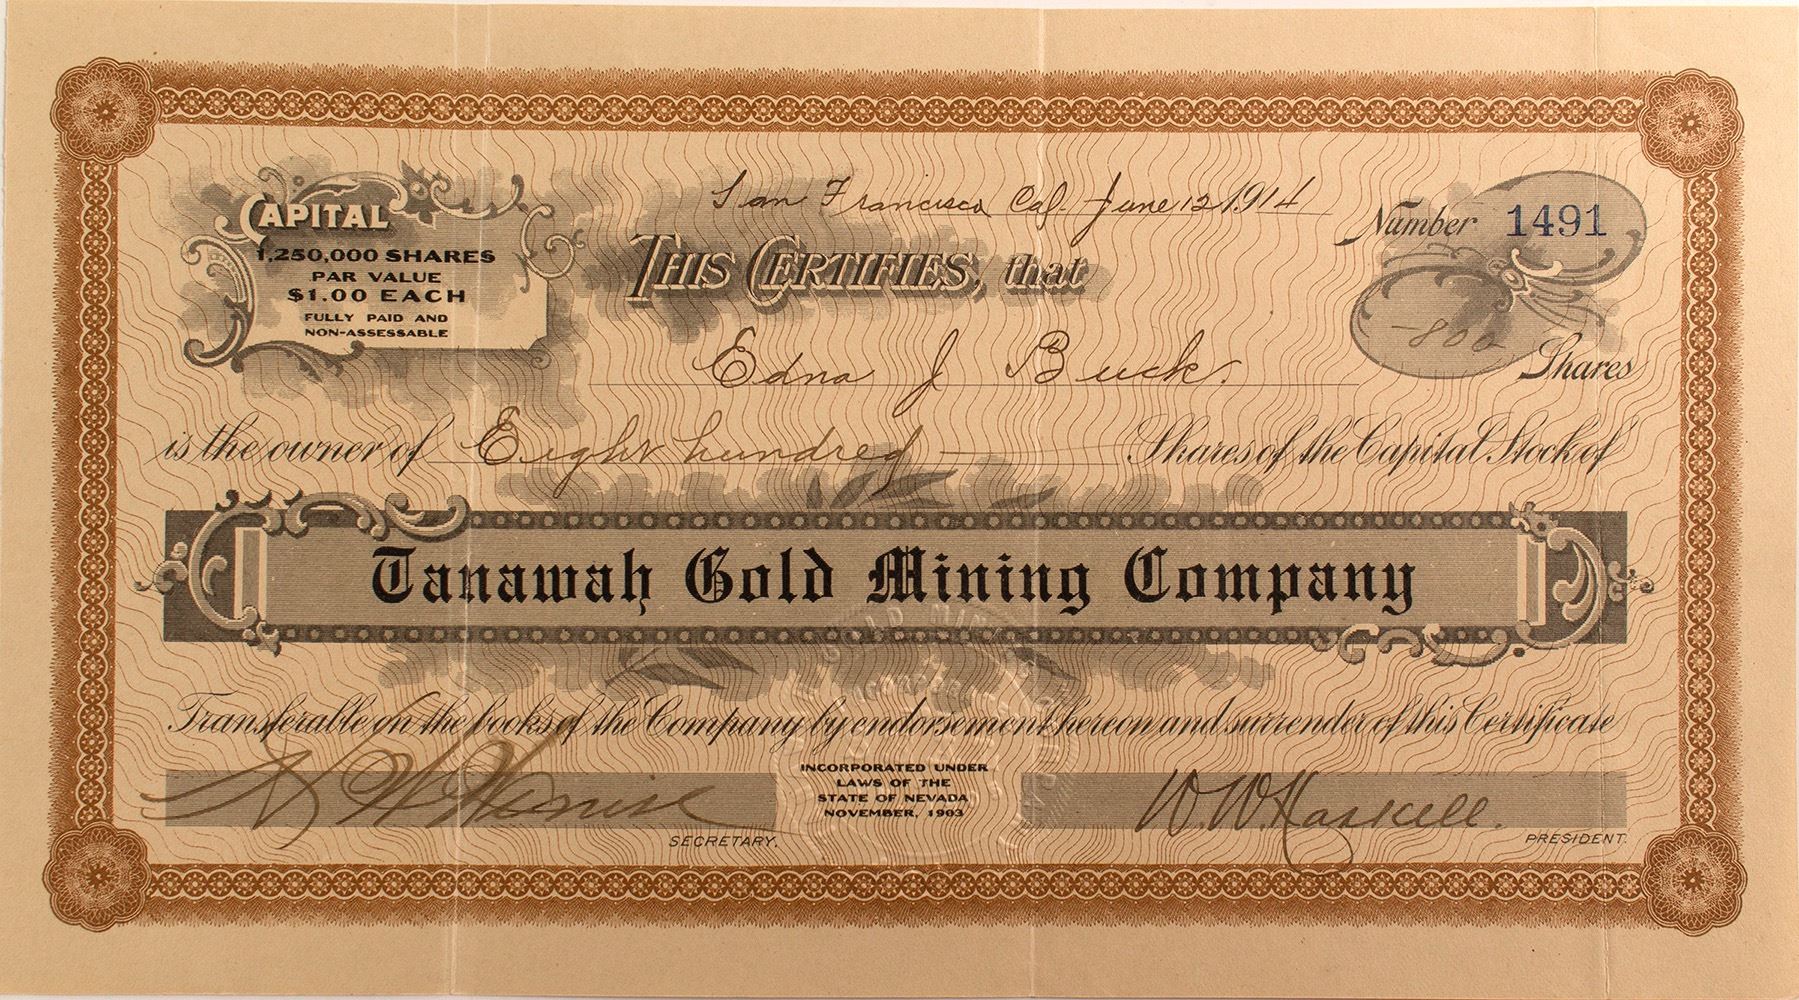 San Francisco Cal. June 12 1914
Number 1491
CAPITAL
1,250,000 SHARES
PAR VALUE
$1.00 EACH
FULLY PAID AND
NON-ASSESSABLE
THIS CERTIFIES, that
-800 Shares
Edna J Buck.
is the owner of Eight hundred Shares of the Capital Stock of
Tanawah Gold Mining Company
GOLD MINING
Transferable on the books of the Company by endorsement hereon and surrender of this Certificate
INCORPORATED UNDER
LAWS OF THE
STATE OF NEVADA
NOVEMBER, 1903
W.W. Haskell.
SECRETARY.
PRESIDENT.